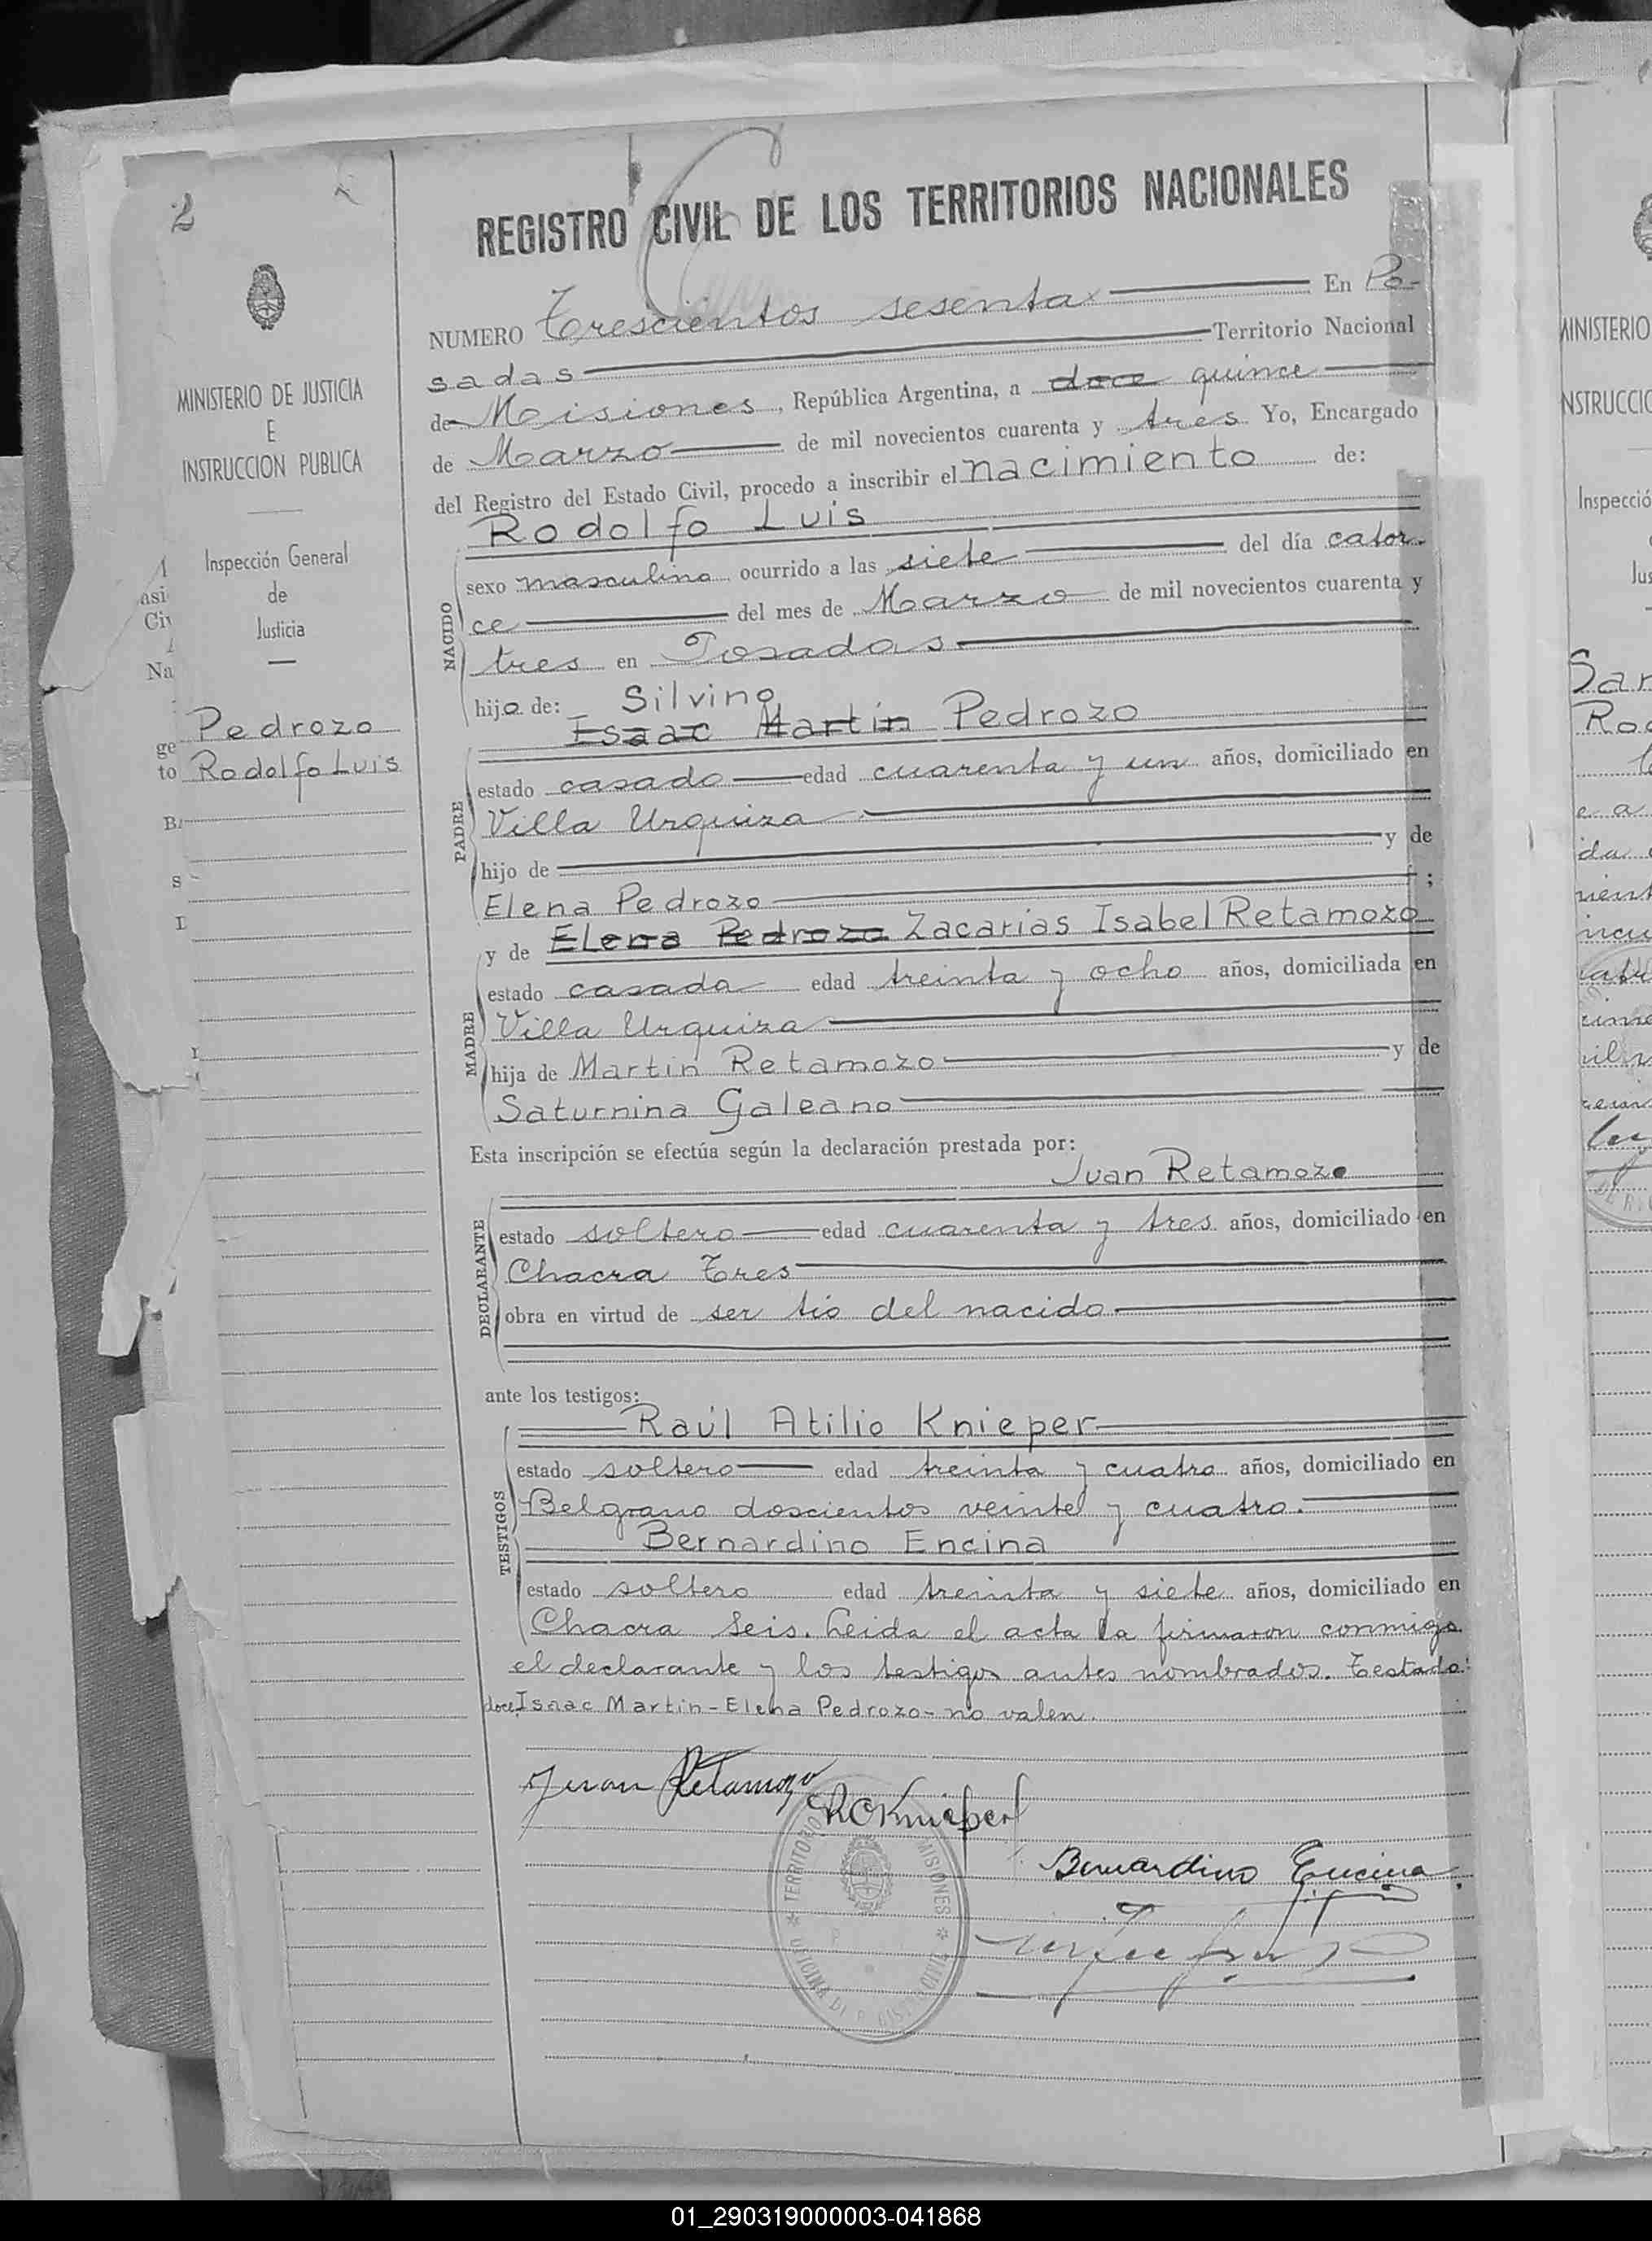 2
MINISTERIO DE JUSTICIA
E
INSTRUCCION PUBLICA
Inspección General
de
Justicia
Pedrozo
Rodolfo Luis
REGISTRO CIVIL DE LOS TERRITORIOS NACIONALES
NUMERO Trescientos sesenta En Po-
sadas Territorio Nacional
de Misiones, República Argentina, a doce quince
de Marzo de mil novecientos cuarenta y tres Yo, Encargado
del Registro del Estado Civil, procedo a inscribir el nacimiento de:
Rodolfo Luis
NACIDO
sexo masculino ocurrido a las siete del día cator-
ce del mes de Marzo de mil novecientos cuarenta y
tres en Posadas
hijo de: Silvino
Isaac Martin Pedrozo
PADRE
estado casado edad cuarenta y un años, domiciliado en
Villa Urquiza
hijo de y de
Elena Pedrozo ;
y de Elena Pedrozo Zacarias Isabel Retamozo
MADRE
estado casada edad treinta y ocho años, domiciliada en
Villa Urquiza
hija de Martin Retamozo y de
Saturnina Galeano
Esta inscripción se efectúa según la declaración prestada por:
Juan Retamozo
DECLARANTE
estado soltero edad cuarenta y tres años, domiciliado en
Chacra Tres
obra en virtud de ser tio del nacido
ante los testigos:
Raúl Atilio Knieper
TESTIGOS
estado soltero edad treinta y cuatro años, domiciliado en
Belgrano doscientos veinte y cuatro.
Bernardino Encina
estado soltero edad treinta y siete años, domiciliado en
Chacra Seis. Leida el acta la firmaron conmigo
el declarante y los testigos antes nombrados. Testado:
doce Isaac Martin - Elena Pedrozo - no valen.
Juan Retamozo
Knieper
Bernardino Encina
TERRITORIO MISIONES
MINISTERIO
INSTRUCCIO
Inspecció
Jus
01_290319000003-041868